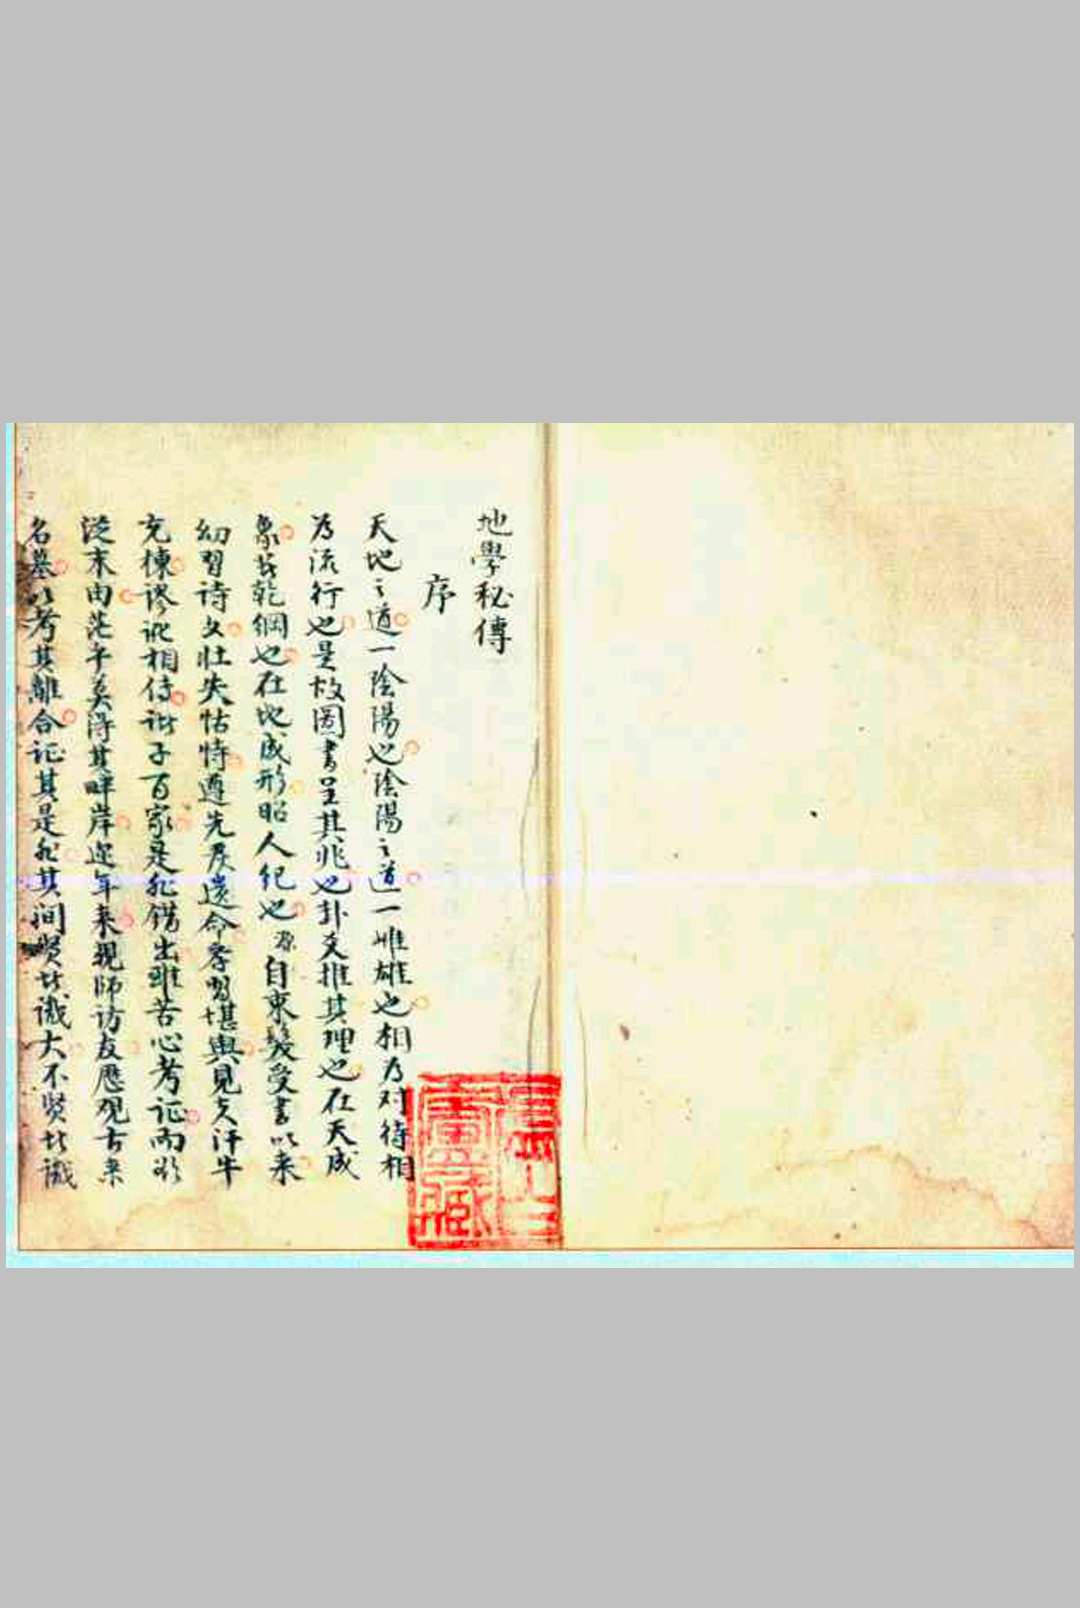 地學秘傳
序
天地之道一陰陽也陰陽之道一雌雄也相为对待相
为流行也是故圖書呈其兆也卦爻推其理也在天成
象若乾綱也在地成形昭人纪也源自束髮受書以来
幼習诗文壮失怙恃遵先君遗命学習堪輿見夫汗牛
充棟谬讹相传诸子百家是非错出雖苦心考证而欲
从末由茫乎莫得其畔岸迩年来親師访友歷观古来
名墓以考其離合证其是非其间贤者識大不贤者識